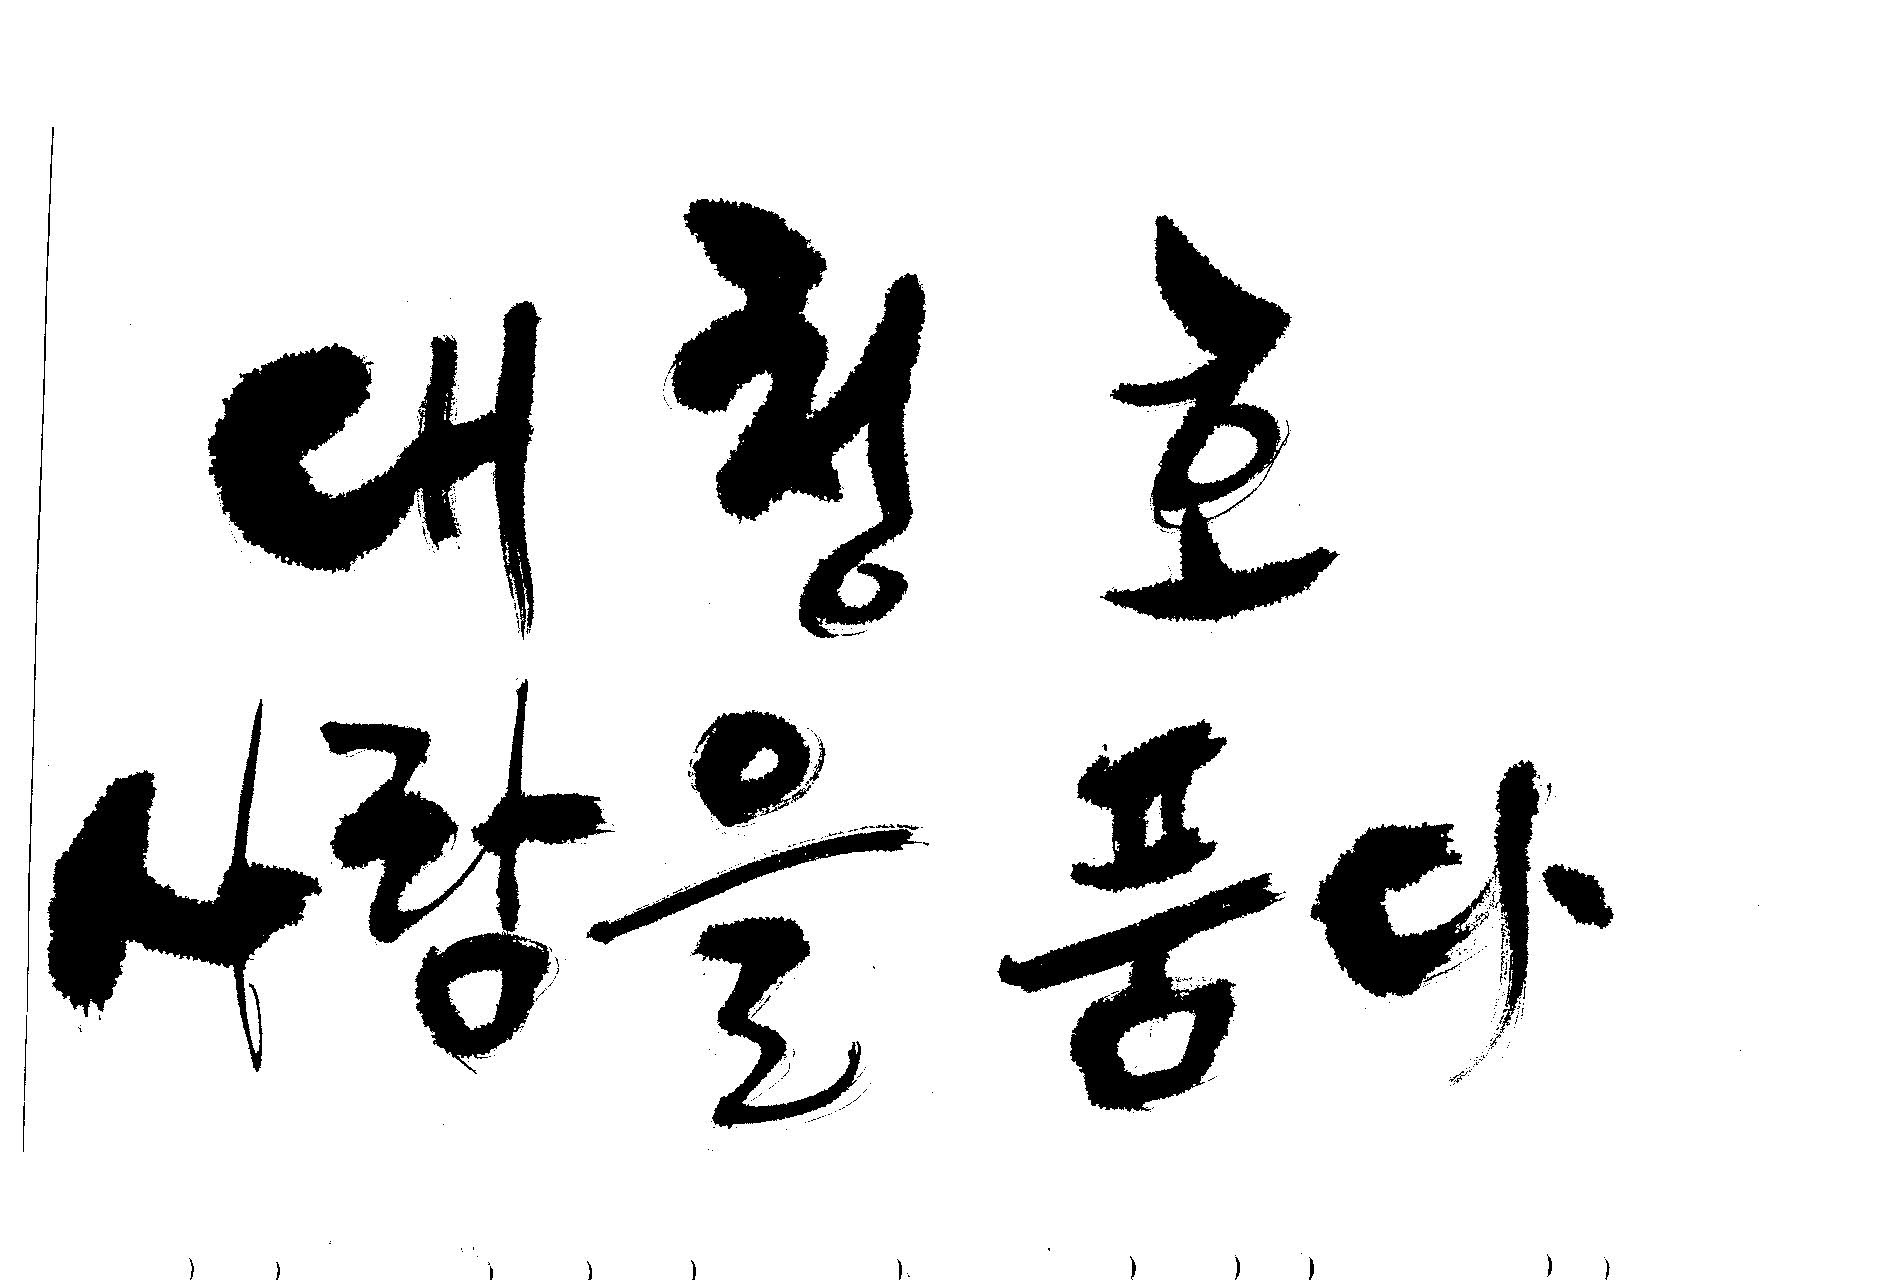 대청호
사랑을 품다